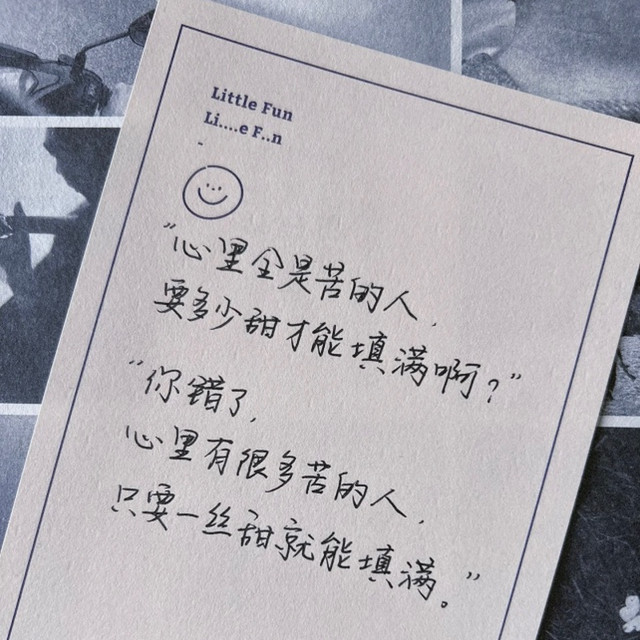 Little Fun
Li....e F..n
“心里全是苦的人,
要多少甜才能填满啊?”
“你错了,
心里有很多苦的人,
只要一丝甜就能填满。”